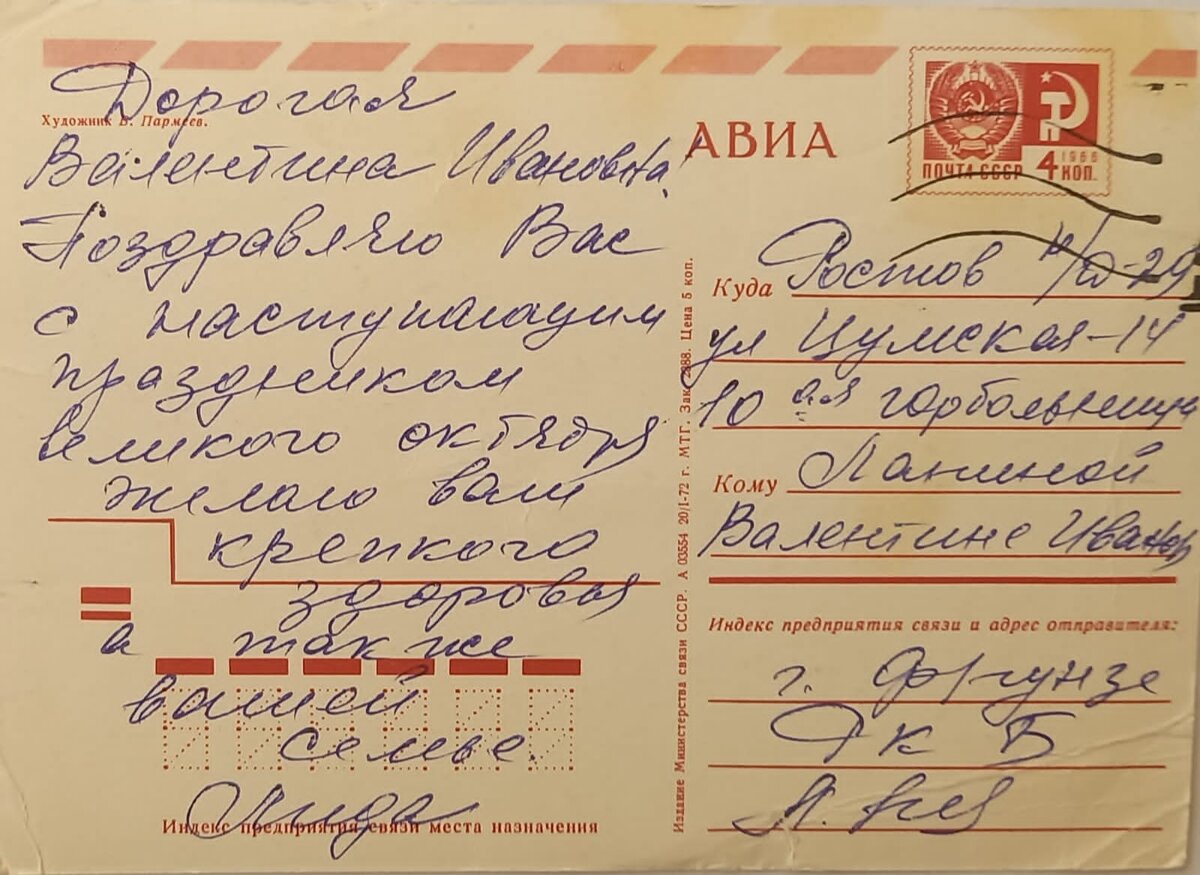 Дорогая
Художник В. Пармеев.
Валентина Ивановна!
Поздравляю Вас
с наступающим
праздником
великого октября
желаю вам
крепкого
здоровья
а также
вашей
семье.
Лида
Индекс предприятия связи места назначения
Издание Министерства связи СССР. А 03554 20/I-72 г. МТГ. Зак. 2888. Цена 5 коп.
АВИА
ПОЧТА СССР
1966
4 КОП.
Куда Ростов н/Д-29
ул Цумская-14
10 ая горбольница
Кому Лапиной
Валентине Иванов
Индекс предприятия связи и адрес отправителя:
г. Фрунзе
РК Б
Л.